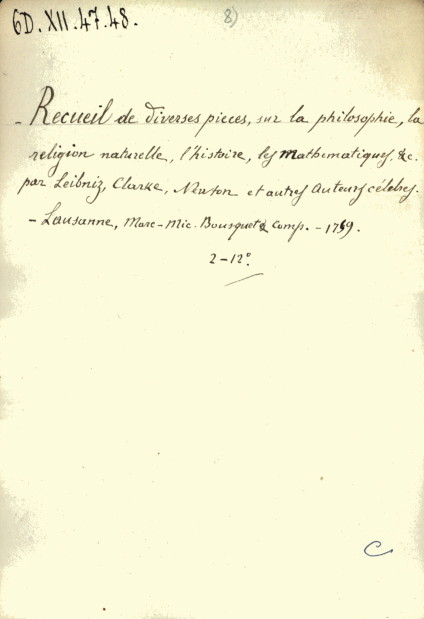 6D. XII. 47. 48.
8)
- Recueil de diverses pieces, sur la philosophie, la
religion naturelle, l'histoire, les Mathematiques, &c.
par Leibniz, Clarke, Newton et autres Auteurs célebres.
- Lausanne, Marc-Mic. Bousquet & Comp. - 1759.
2-12°.
C